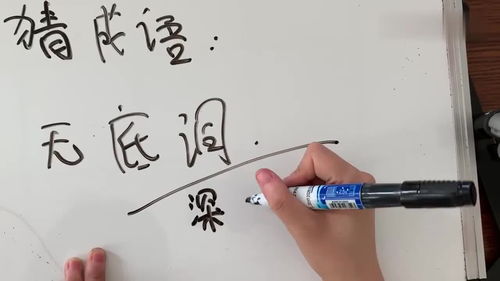 猜成语:
无底洞.
深